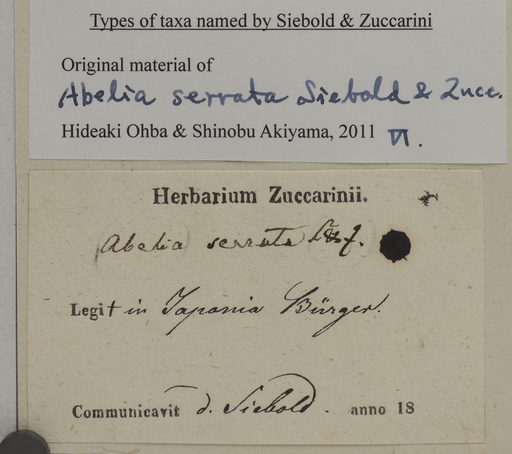 Types of taxa named by Siebold & Zuccarini
Original material of
Abelia serrata Siebold & Zucc.
Hideaki Ohba & Shinobu Akiyama, 2011 VI.
Herbarium Zuccarinii.
Abelia serrata
Legit in Japonia Bürger.
Communicavit d. Siebold. anno 18